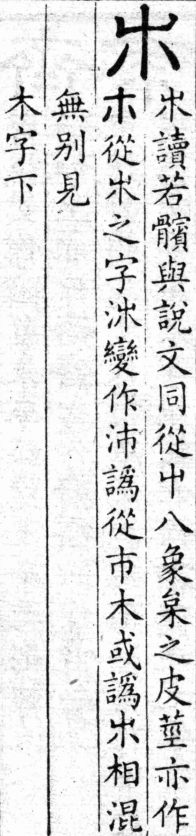 𣎳
𣎳讀若髕與說文同從屮八象枲之皮莖亦作
朩從𣎳之字㳈變作沛譌從巿木或譌𣎳相混
無別見
木字下